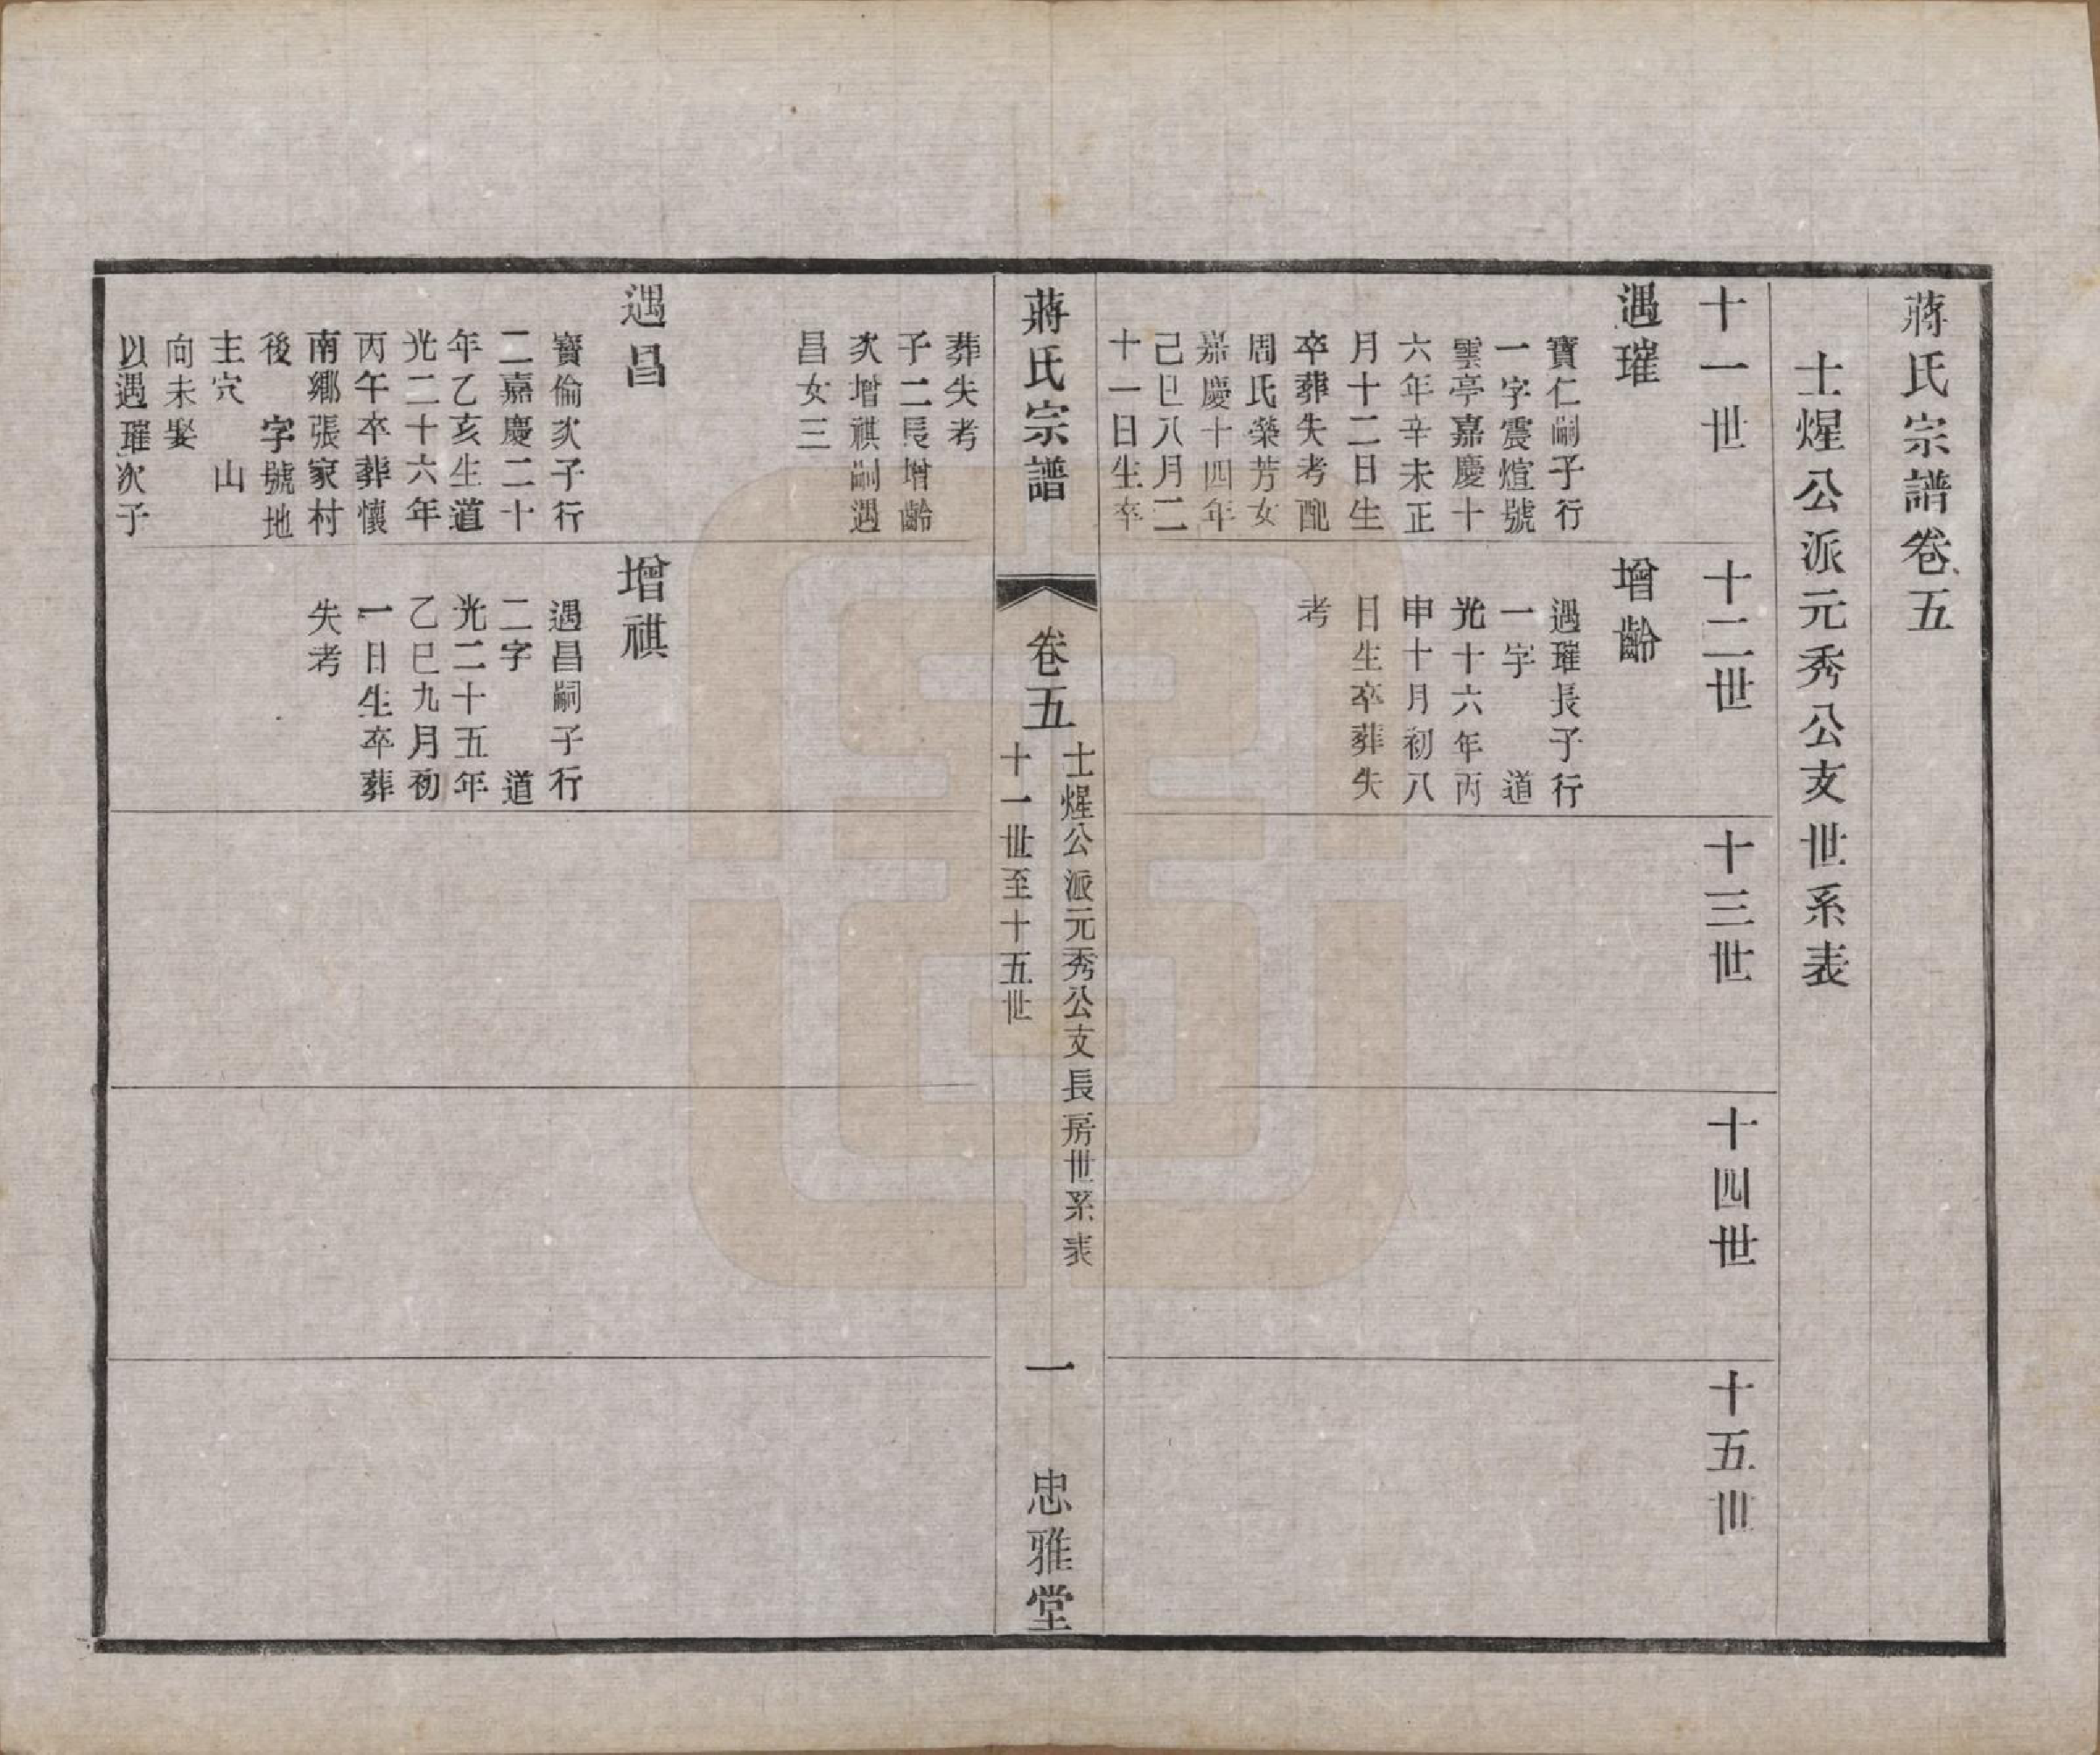 蔣氏宗譜卷五
士煋公派元秀公支世系表
十一世
十二世
十三世
十四世
十五世
遇璀
寶仁嗣子行
一字震煊號
雲亭嘉慶十
六年辛未正
月十二日生
卒葬失考配
周氏榮芳女
嘉慶十四年
己巳八月二
十一日生卒
增齡
遇璀長子行
一字 道
光十六年丙
申十月初八
日生卒葬失
考
蔣氏宗譜
卷五
士煋公派元秀公支長房世系表
十一世至十五世
一
忠雅堂
葬失考
子二長增齡
次增祺嗣遇
昌女三
遇昌
寶倫次子行
二嘉慶二十
年乙亥生道
光二十六年
丙午卒葬懷
南鄉張家村
後 字號地
主穴 山
向未娶
以遇璀次子
增祺
遇昌嗣子行
二字 道
光二十五年
乙巳九月初
一日生卒葬
失考